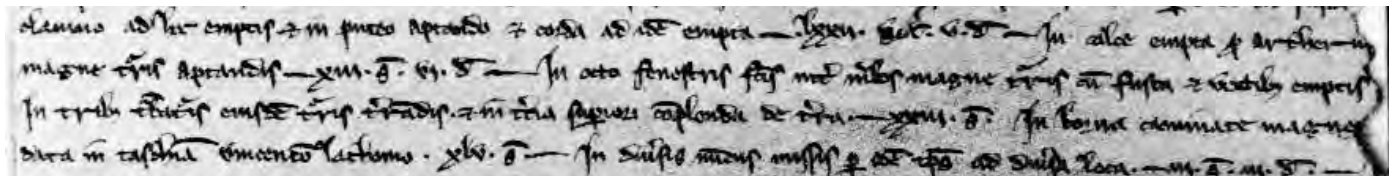 clauino ad hec emptis ⁊ in puteo aptando ⁊ corda ad idē empta — lxxii. sol. v. d̄ — In calce empta ꝑ archeriis
magne t̄ris aptandis — xiii. s̄. vi. d̄ — In octo fenestris fc̄is int̄ mēbros magne t̄ris cū fusta ⁊ vectibȝ emptis
In tribȝ eiusdē t̄ris t̄radis. ⁊ in t̄cia supiori cōplenda de t̄ra — xxiii. s̄. In borna caminate magne
data in taschiā vincentō lathomo. xlv. s̄ — In diūsis nūciis missis ꝑ idē tp̄s ad diūsa loca. — iii. s̄. iii. d̄. —